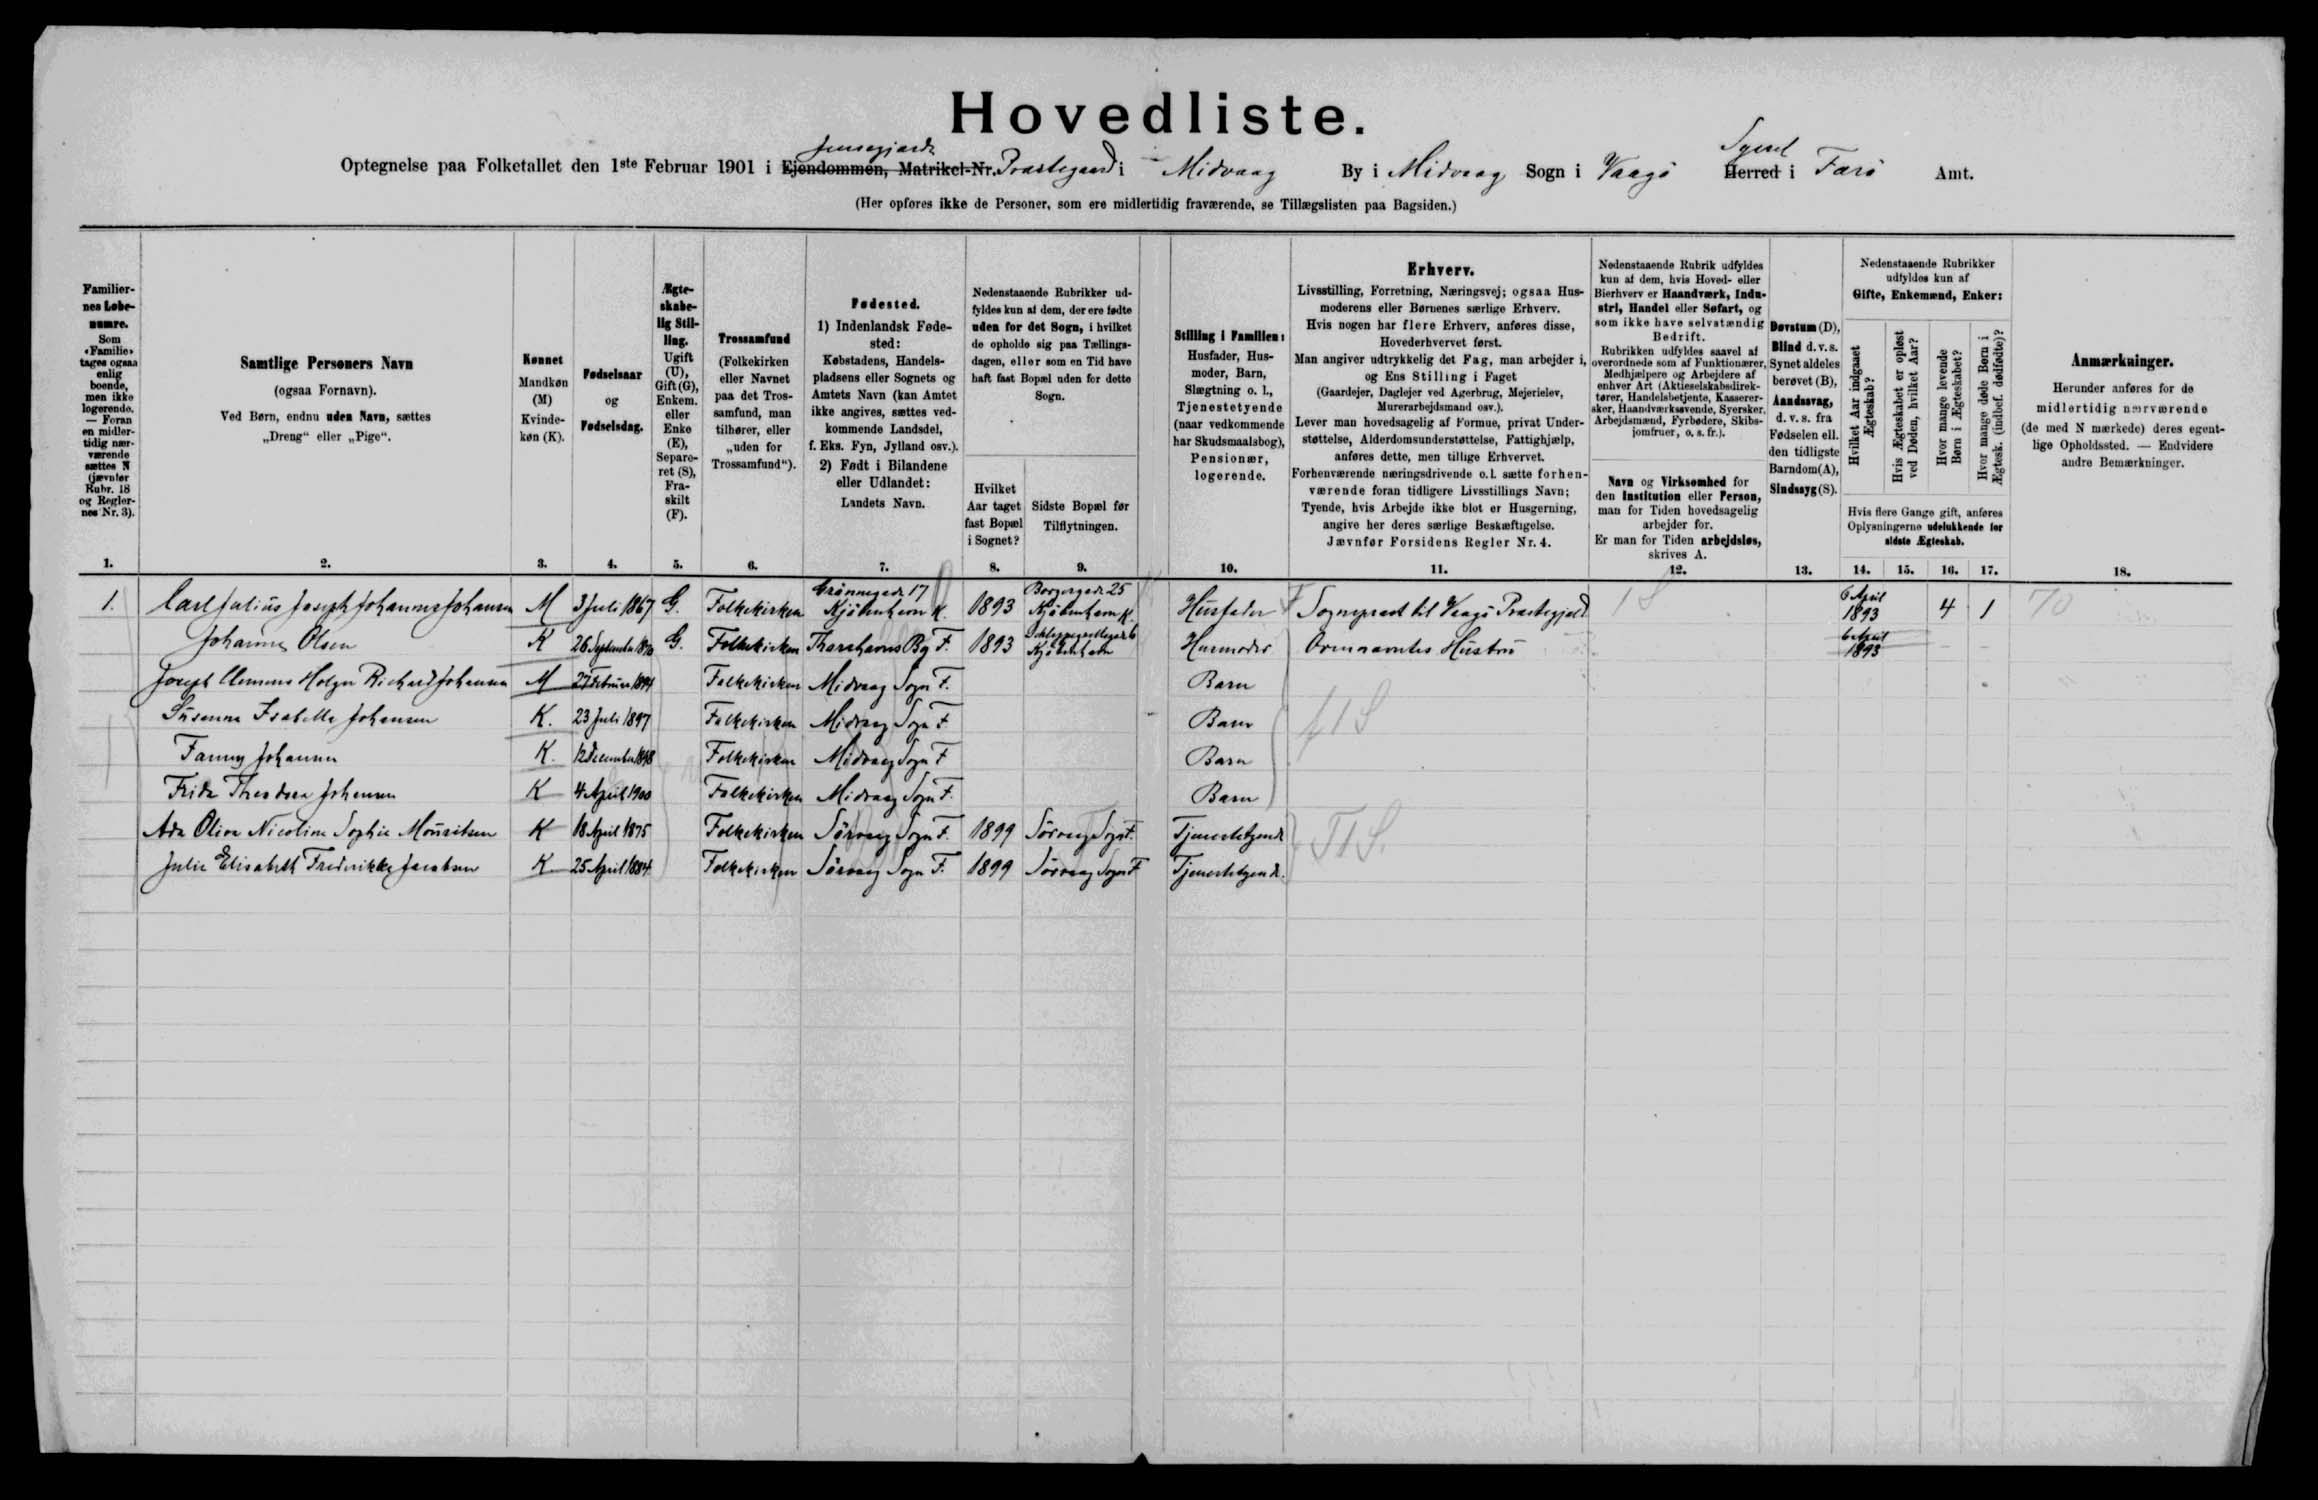 Hovedliste.
Jensegjærde Syssel
Optegnelse paa Folketallet den 1ste Februar 1901 i Ejendommen, Matrikel-Nr. Præstegaard i Midvaag By i Midvaag Sogn i Vaagø Herred i Færø Amt.
(Her opføres ikke de Personer, som ere midlertidig fraværende, se Tillægslisten paa Bagsiden.)
Familiernes Løbenumre.
Som «Familie» tages ogsaa enlig boende, men ikke logerende. — Foran en midlertidig nærværende sættes N (jævnfør Rubr. 18 og Reglernes Nr. 3).
1.
Samtlige Personers Navn
(ogsaa Fornavn).
Ved Børn, endnu uden Navn, sættes
„Dreng“ eller „Pige“.
2.
Kønnet
Mandkøn
(M)
Kvinde-
køn (K).
3.
Fødselsaar
og
Fødselsdag.
4.
Ægte-
skabe-
lig Stil-
ling.
Ugift
(U),
Gift (G),
Enkem.
eller
Enke
(E),
Separe-
ret (S),
Fra-
skilt
(F).
5.
Trossamfund
(Folkekirken
eller Navnet
paa det Tros-
samfund, man
tilhører, eller
„uden for
Trossamfund“).
6.
Fødested.
1) Indenlandsk Føde-
sted:
Købstadens, Handels-
pladsens eller Sognets og
Amtets Navn (kan Amtet
ikke angives, sættes ved-
kommende Landsdel,
f. Eks. Fyn, Jylland osv.).
2) Født i Bilandene
eller Udlandet:
Landets Navn.
7.
Nedenstaaende Rubrikker ud-
fyldes kun af dem, der ere fødte
uden for det Sogn, i hvilket
de opholde sig paa Tællings-
dagen, eller som en Tid have
haft fast Bopæl uden for dette
Sogn.
Hvilket
Aar taget
fast Bopæl
i Sognet?
8.
Sidste Bopæl før
Tilflytningen.
9.
Stilling i Familien:
Husfader, Hus-
moder, Barn,
Slægtning o. l.,
Tjenestetyende
(naar vedkommende
har Skudsmaalsbog),
Pensionær,
logerende.
10.
Erhverv.
Livsstilling, Forretning, Næringsvej; ogsaa Hus-
moderens eller Børnenes særlige Erhverv.
Hvis nogen har flere Erhverv, anføres disse,
Hovederhvervet først.
Man angiver udtrykkelig det Fag, man arbejder i,
og Ens Stilling i Faget
(Gaardejer, Daglejer ved Agerbrug, Mejerielev,
Murerarbejdsmand osv.).
Lever man hovedsagelig af Formue, privat Under-
støttelse, Alderdomsunderstøttelse, Fattighjælp,
anføres dette, men tillige Erhvervet.
Forhenværende næringsdrivende o. l. sætte forhen-
værende foran tidligere Livsstillings Navn;
Tyende, hvis Arbejde ikke blot er Husgerning,
angive her deres særlige Beskæftigelse.
Jævnfør Forsidens Regler Nr. 4.
11.
Nedenstaaende Rubrik udfyldes
kun af dem, hvis Hoved- eller
Bierhverv er Haandværk, Indu-
stri, Handel eller Søfart, og
som ikke have selvstændig
Bedrift.
Rubrikken udfyldes saavel af
overordnede som af Funktionærer,
Medhjælpere og Arbejdere af
enhver Art (Aktieselskabsdirek-
tører, Handelsbetjente, Kasserer-
sker, Haandværkssvende, Syersker,
Arbejdsmænd, Fyrbødere, Skibs-
jomfruer, o. s. fr.).
Navn og Virksomhed for
den Institution eller Person,
man for Tiden hovedsagelig
arbejder for.
Er man for Tiden arbejdsløs,
skrives A.
12.
Døvstum (D),
Blind d. v. s.
Synet aldeles
berøvet (B),
Aandssvag,
d. v. s. fra
Fødselen ell.
den tidligste
Barndom (A),
Sindssyg (S).
13.
Nedenstaaende Rubrikker
udfyldes kun af
Gifte, Enkemænd, Enker:
Hvilket Aar indgaaet
Ægteskab?
Hvis Ægteskabet er opløst
ved Døden, hvilket Aar?
Hvor mange levende
Børn i Ægteskabet?
Hvor mange døde Børn i
Ægtesk. (indbef. dødfødte)?
Hvis flere Gange gift, anføres
Oplysningerne udelukkende for
sidste Ægteskab.
14. 15. 16. 17.
Anmærkninger.
Herunder anføres for de
midlertidig nærværende
(de med N mærkede) deres egent-
lige Opholdssted. — Endvidere
andre Bemærkninger.
18.
1. Carl Julius Joseph Johannes Johansen M 3 Juli 1867 G. Folkekirken Grønnegade 17 Kjøbenhavn K. 1893 Borgergade 25 Kjøbenhavn K. Husfader Sognepræst til Vaagø Præstegjæld 1 S 6 April 1893 4 1 70
Johanne Olsen K 26 September 1870 G. Folkekirken Thorshavns By F. 1893 Kjøbenhavn Husmoder Ovennævntes Hustru 6 April 1893
Joseph Clemens Holger Richard Johansen M 27 Februar 1894 Folkekirken Midvaag Sogn F. Barn
Susanna Isabella Johansen K. 23 Juli 1897 Folkekirken Midvaag Sogn F Barn
Fanny Johansen K. 12 December 1898 Folkekirken Midvaag Sogn F Barn
Frida Theodora Johansen K 4 April 1900 Folkekirken Midvaag Sogn F. Barn
Ada Oliva Nicoline Sophie Mouritsen K 18 April 1875 Folkekirken Sørvaag Sogn F. 1899 Sørvaag Sogn F. Tjenestetyende
Julie Elisabeth Frederikke Jacobsen K 25 April 1884 Folkekirken Sørvaag Sogn F. 1899 Sørvaag Sogn F Tjenestetyende.